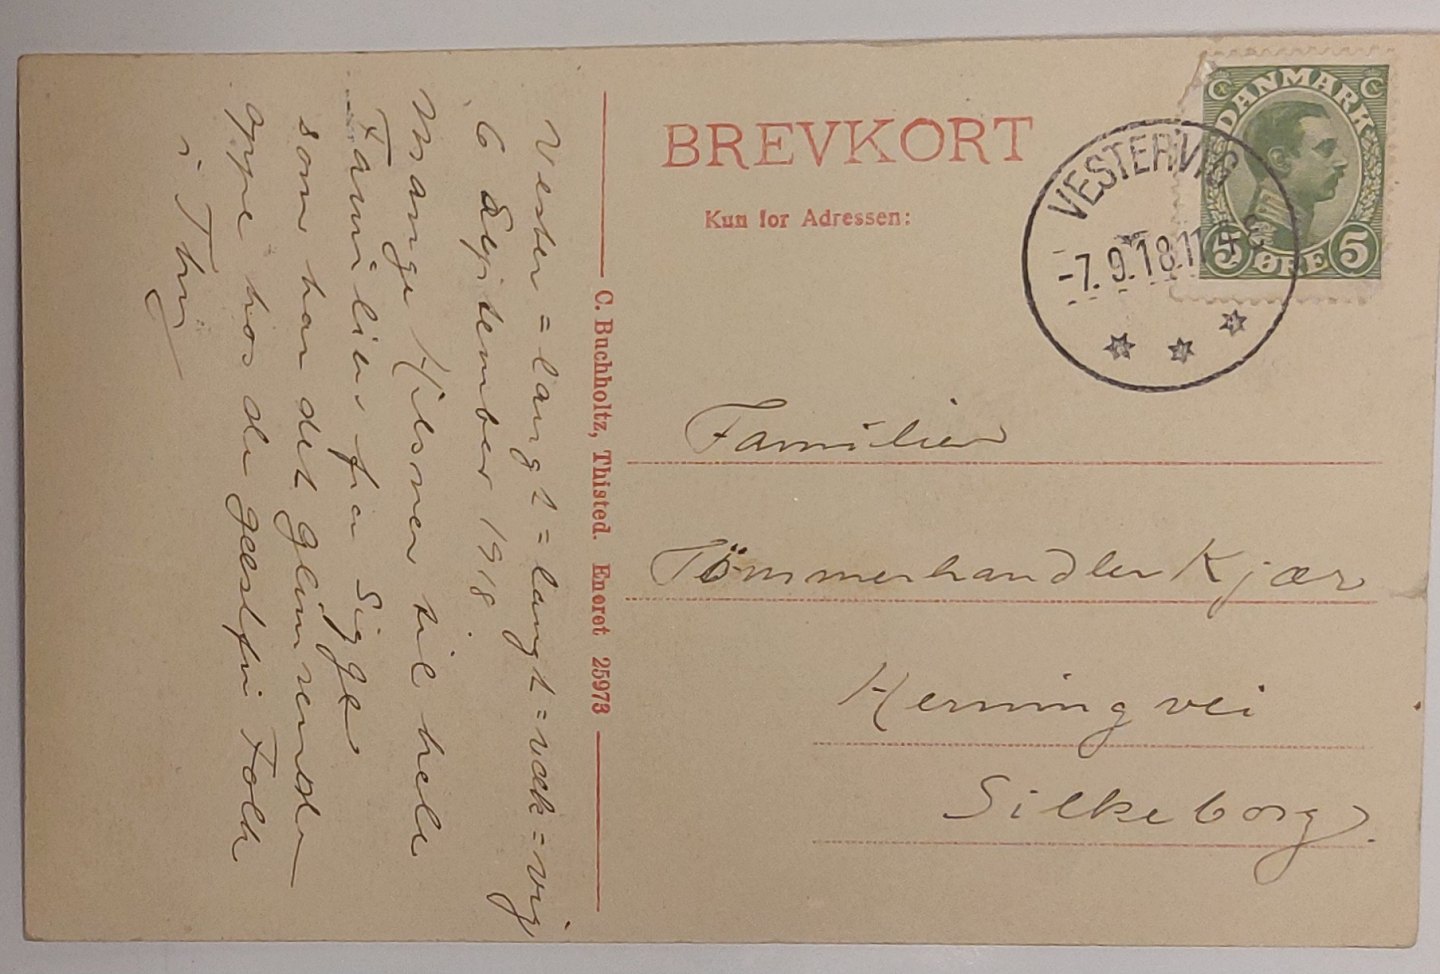 BREVKORT
Kun for Adressen:
DANMARK
5 ØRE 5
VESTERVIG
-7.9.18.11
Familien
Tömmerhandler Kjær
Herningvei
Silkeborg.
C. Buchholtz, Thisted. Eneret 25973
Vester = langt = langt = væk = vig
6 September 1918
Mange Hilsner til hele
Familien fra Sigge
som har det glimrende
oppe hos de gæstfri Folk
i Thy